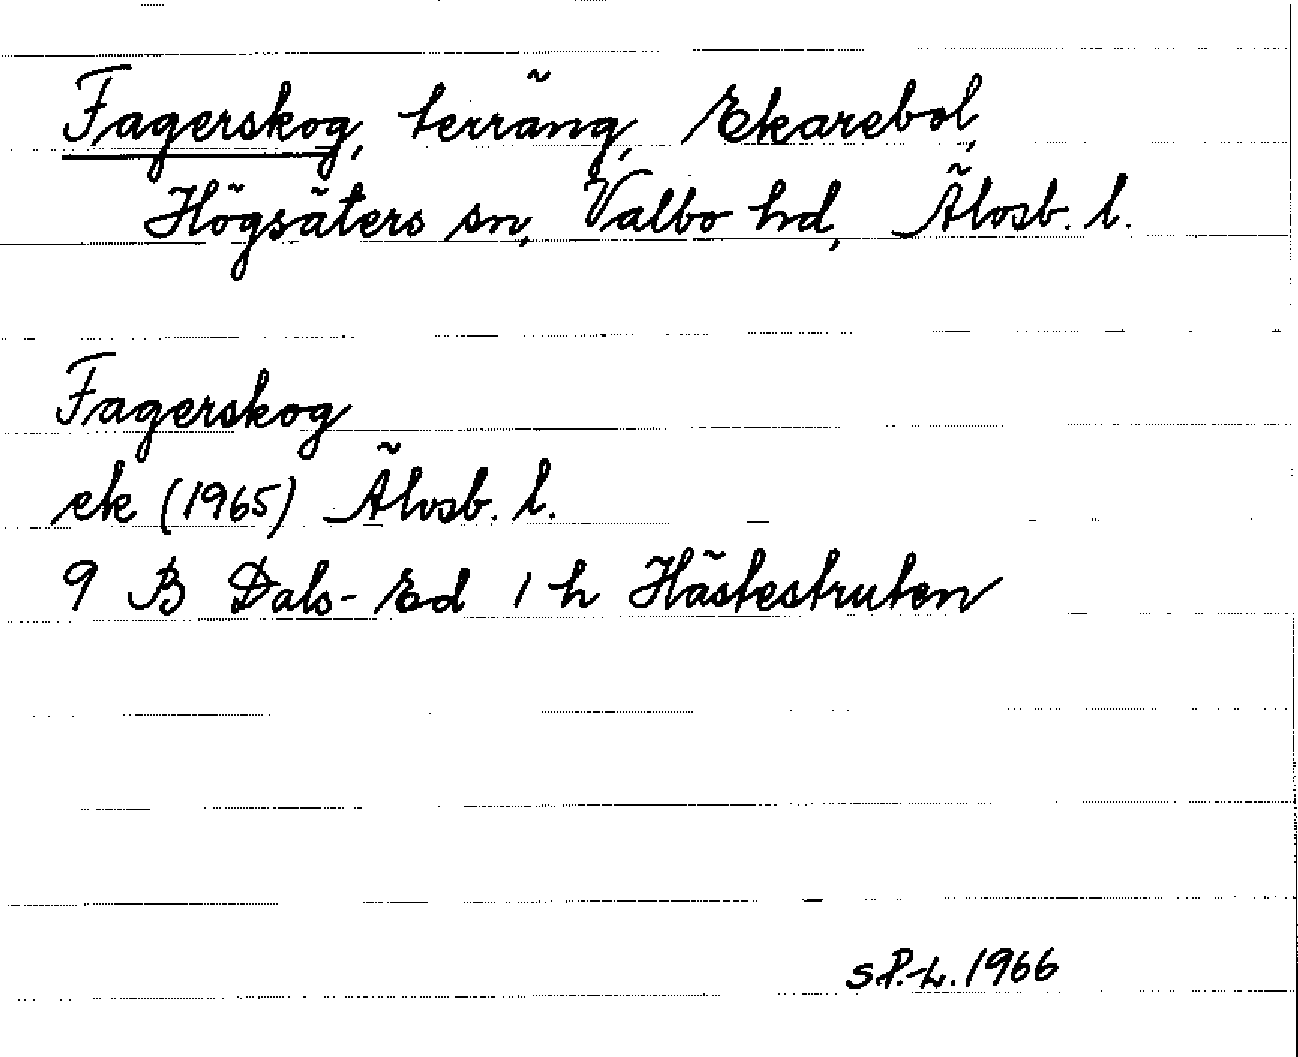 Fagerskog, terräng, Ekarebol,
Högsäters sn, Valbo hd, Älvsb. l.
Fagerskog
ek (1965) Älvsb. l.
9 B Dals-Ed 1 h Hästestruten
S.P.-L. 1966